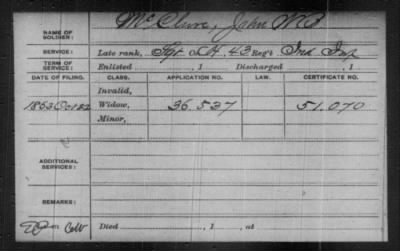 NAME OF SOLDIER: McClure, John McP
SERVICE: Late rank, Sgt. Co. H. 43 Reg't Ind Inf
TERM OF SERVICE: Enlisted , 1 Discharged , 1
DATE OF FILING. CLASS. APPLICATION NO. LAW. CERTIFICATE NO.
Invalid,
1863 Oct 22 Widow, 36.537 51.070
Minor,
ADDITIONAL SERVICES:
REMARKS:
Died , 1 , at